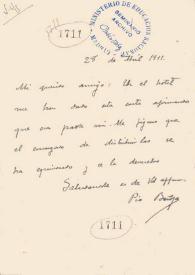 1711
MINISTERIO DE EDUCACIÓN NACIONAL
SEMINARIO
ARCHIVO
28 de Abril 1911.
Mi querido amigo: En el hotel
me han dado esta carta afirmando
que era para mi. Me figuro que
el encargado de distribuirlas se
ha equivocado y se la devuelvo
Saludando es de Vd affmo.
Pío Baroja
1711